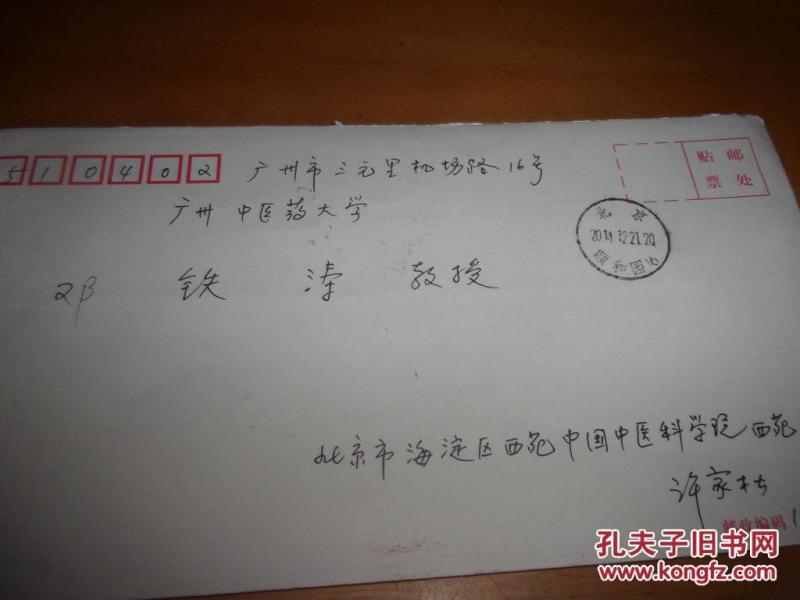 510402
广州市三元里机场路16号
广州中医药大学
贴邮
票处
北京
2011.12.21.20
颐和园16
邓铁涛教授
北京市海淀区西苑中国中医科学院西苑
许家松
邮政编码1
孔夫子旧书网
www.kongfz.com